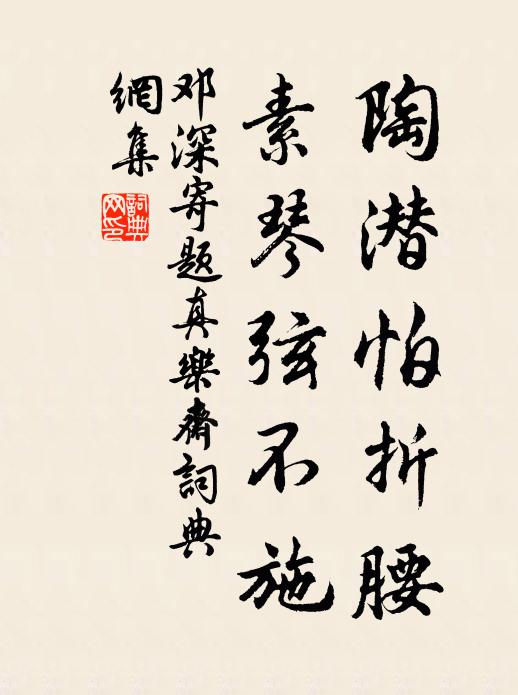 陶潜怕折腰
素琴弦不施
邓深寄题真樂齋詞典
網集
詞典
网印